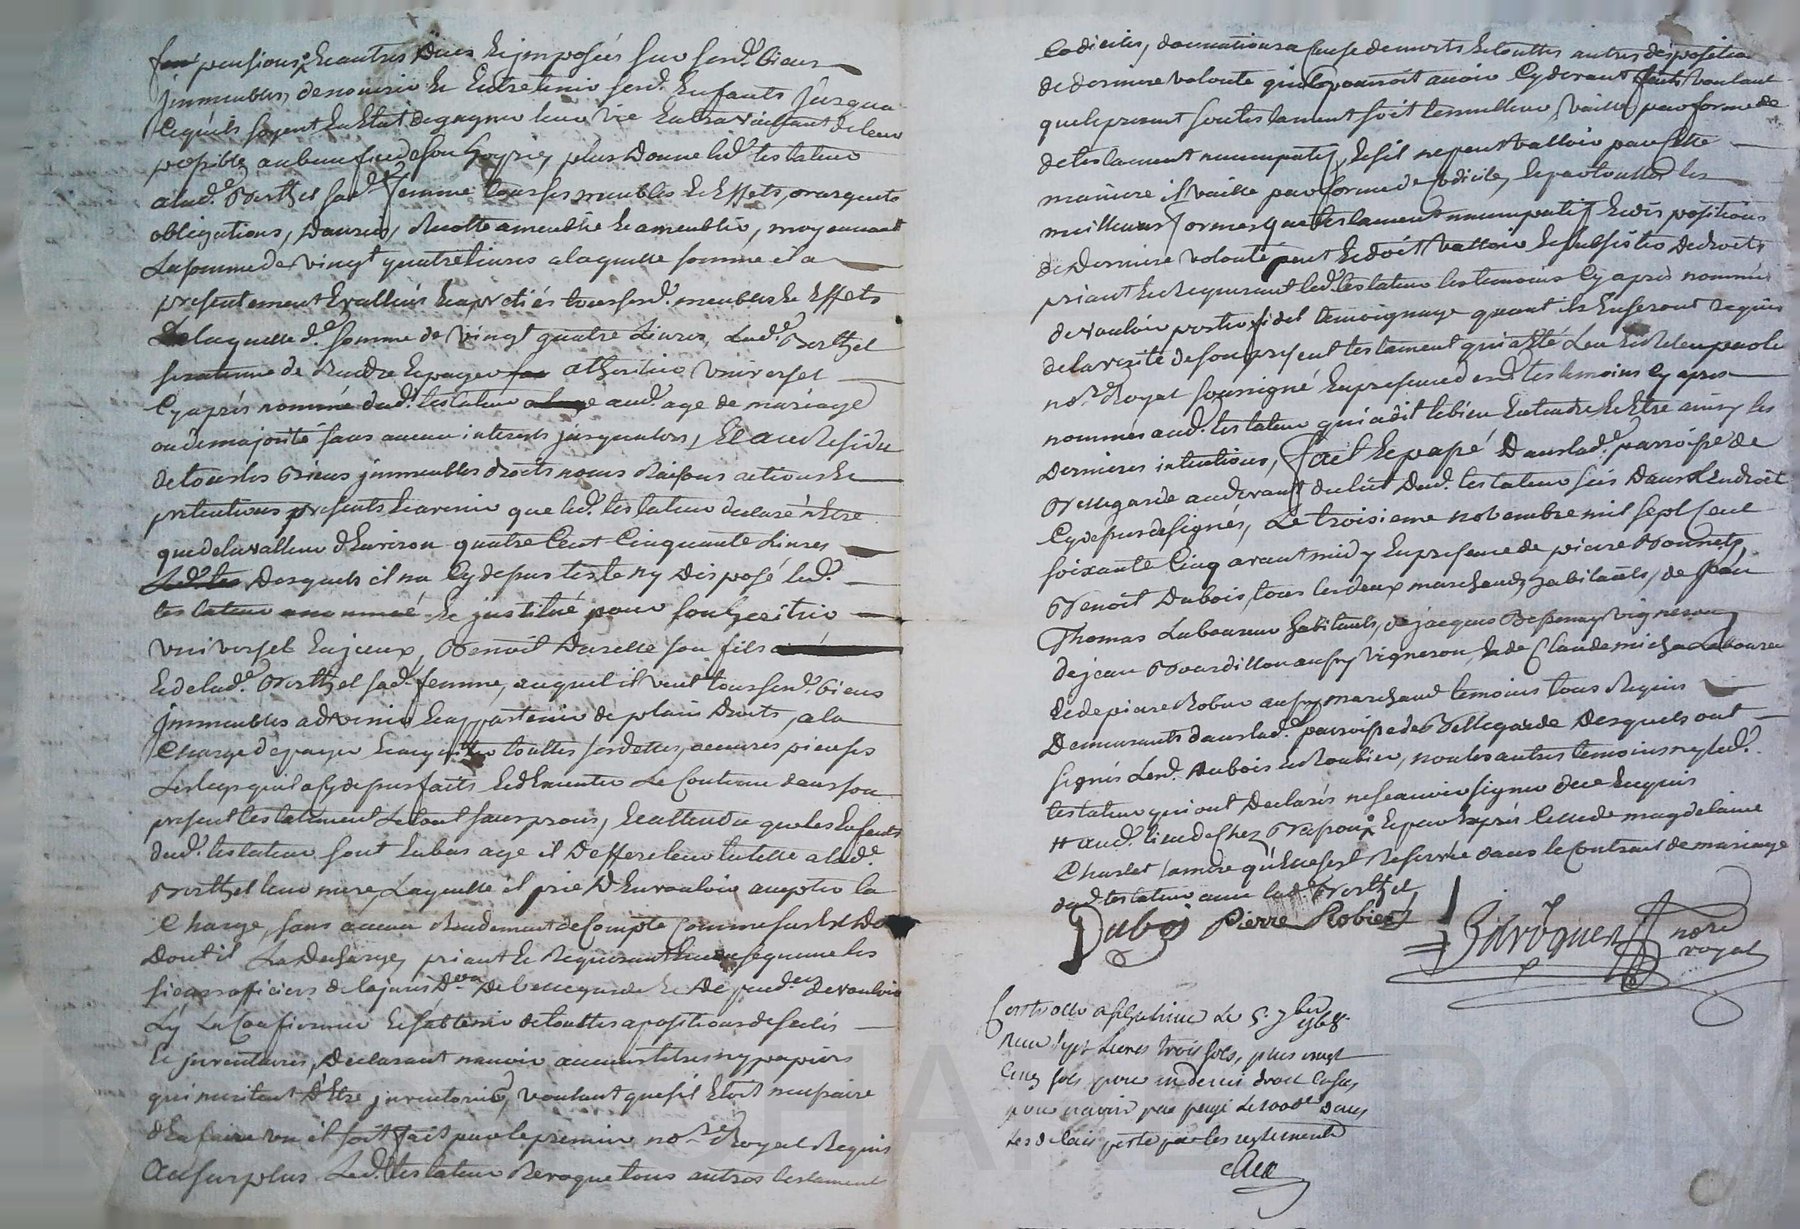 pensions et autres dues et imposées sur sesd. biens
immeubles, de nourir et Entretenir sesd. Enfants jusqua
cequils soyent En Etat de gagner leur vie En travaillant de leur
possible au benefice de son hoyrie, plus Donne led. testateur
a lad.e Berthet sad.e femme tous ses meubles et Effets,
obligations, Danrées, Récolte ameublie et ameublir, moyennant
La somme de vingt quatre livres a laquelle somme il a
presentement Evallués et apretiés tous sesd. meubles et Effets
De laquelle d.e somme de vingt quatre Livres, Lad.e Berthet
sera tenue de Rendre et payer a l'heritier universel
Cyaprés nommé dud. testateur aud. age de mariage
ou de majorité sans aucun interets jusqualors, Et au Residu
de tous les Biens immeubles droits noms Raisons actions et
pretentions presents et avenir que led. testateur declare n'Etre
que de la valleur d'Environ quatre Cent Cinquante Livres
Desquels il na Cydepus testé ny Disposé led.
testateur a nommé et institué pour son heritier
universel En jceux, Benoit Darelle son fils
Et de lad.e Berthet sad.e femme, auquel il veut tous sesd. biens
jmmeubles advenir Et appartenir de plain Droits, a la
Charge de payer Et acquitter touttes ses dettes, oeuvres pieuses
Les legs quil a Cydepus faits Et d'Executer Le Contenu dans son
present testament Le tout sans procés, Et attendu que les Enfants
dud. testateur sont En bas age il Deffere leur tutelle a lad.e
Berthet leur mere, Laquelle il prie D'En vouloir accepter la
Charge, sans aucun Rendement de Compte
Dont il La Decharge, priant et Requerant En Consequence les
sieurs officiers de la jurisd.on de bellegarde et Dépend.ces de vouloir
L'y La Confirmer Et s'abstenir de touttes apositions de scelés
Et jnventaires, Declarant n'avoir aucuns titres ny papiers
qui meritent D'Etre jnventoriés, voulant que s'il Etoit necessaire
d'En faire un il soit fait par le premier no.re Royal Requis
Au surplus Led. testateur Revoque tous autres testaments
Codiciles, donnations a Cause de morts Et touttes autres disposition
de derniere volonté quil pourroit avoir Cydevant faits voulant
que le present son testament soit le meilleur, vaille par forme de
testament nuncupatif, Et s'il ne peut valloir par cette
maniere il vaille par forme de Codicile, Et par touttes les
meilleures formes que testament nuncupatif Et dispositions
de Derniere volonté peut Et doit valloir Et subsister De droits
priant Et Requerant led. testateur les temoins Cy aprés nommés
de vouloir porter fidel temoignage quant ils En seront Requis
de la verité de son present testament qui a Eté Leu Et Releu par le
no.re Royal soussigné En presence desd. temoins Cy aprés
nommés aud. testateur qui a dit le bien Entendre Et Etre ainsy ses
Dernieres intentions, fait Et passé Dans lad.e parroisse de
Bellegarde au devant du lict Dud. testateur sis Dans L'Endroit
Cydepus designés, Le troisieme novembre mil sept Cent
soixante Cinq avant midy En presence de pierre Bonnet,
Benoit Dubois, tous les deux marchands habitants, de jean
Thomas Laboureur habitants, de jacques Bessenay vigneron
de jean Bourdillon aussy vigneron, Et de Claude michel Laboureur
Et de pierre Robier aussy marchand temoins tous Requis
Demeurants dans lad.e parroisse de Bellegarde Desquels ont
signés Lesd. Dubois Et Roubier, non les autres temoins ny led.
testateur qui ont Declarés ne scavoir signer de ce Enquis
aud. lieu de Chez Et par Exprés Claude magdelaine
Charlet s'a mere qu'Elle s'est Reservée dans le Contrat de mariage
dud. testateur avec lad. Berthet
Dubois Pierre Robier
no.re
royal
Controllé a Le 5. 9bre
1768.
Reçu sept Livres trois sols, plus vingt
Cinq sols pour
pour n'avoir pas payé Le 100e Dans
les delais porté par les reglements